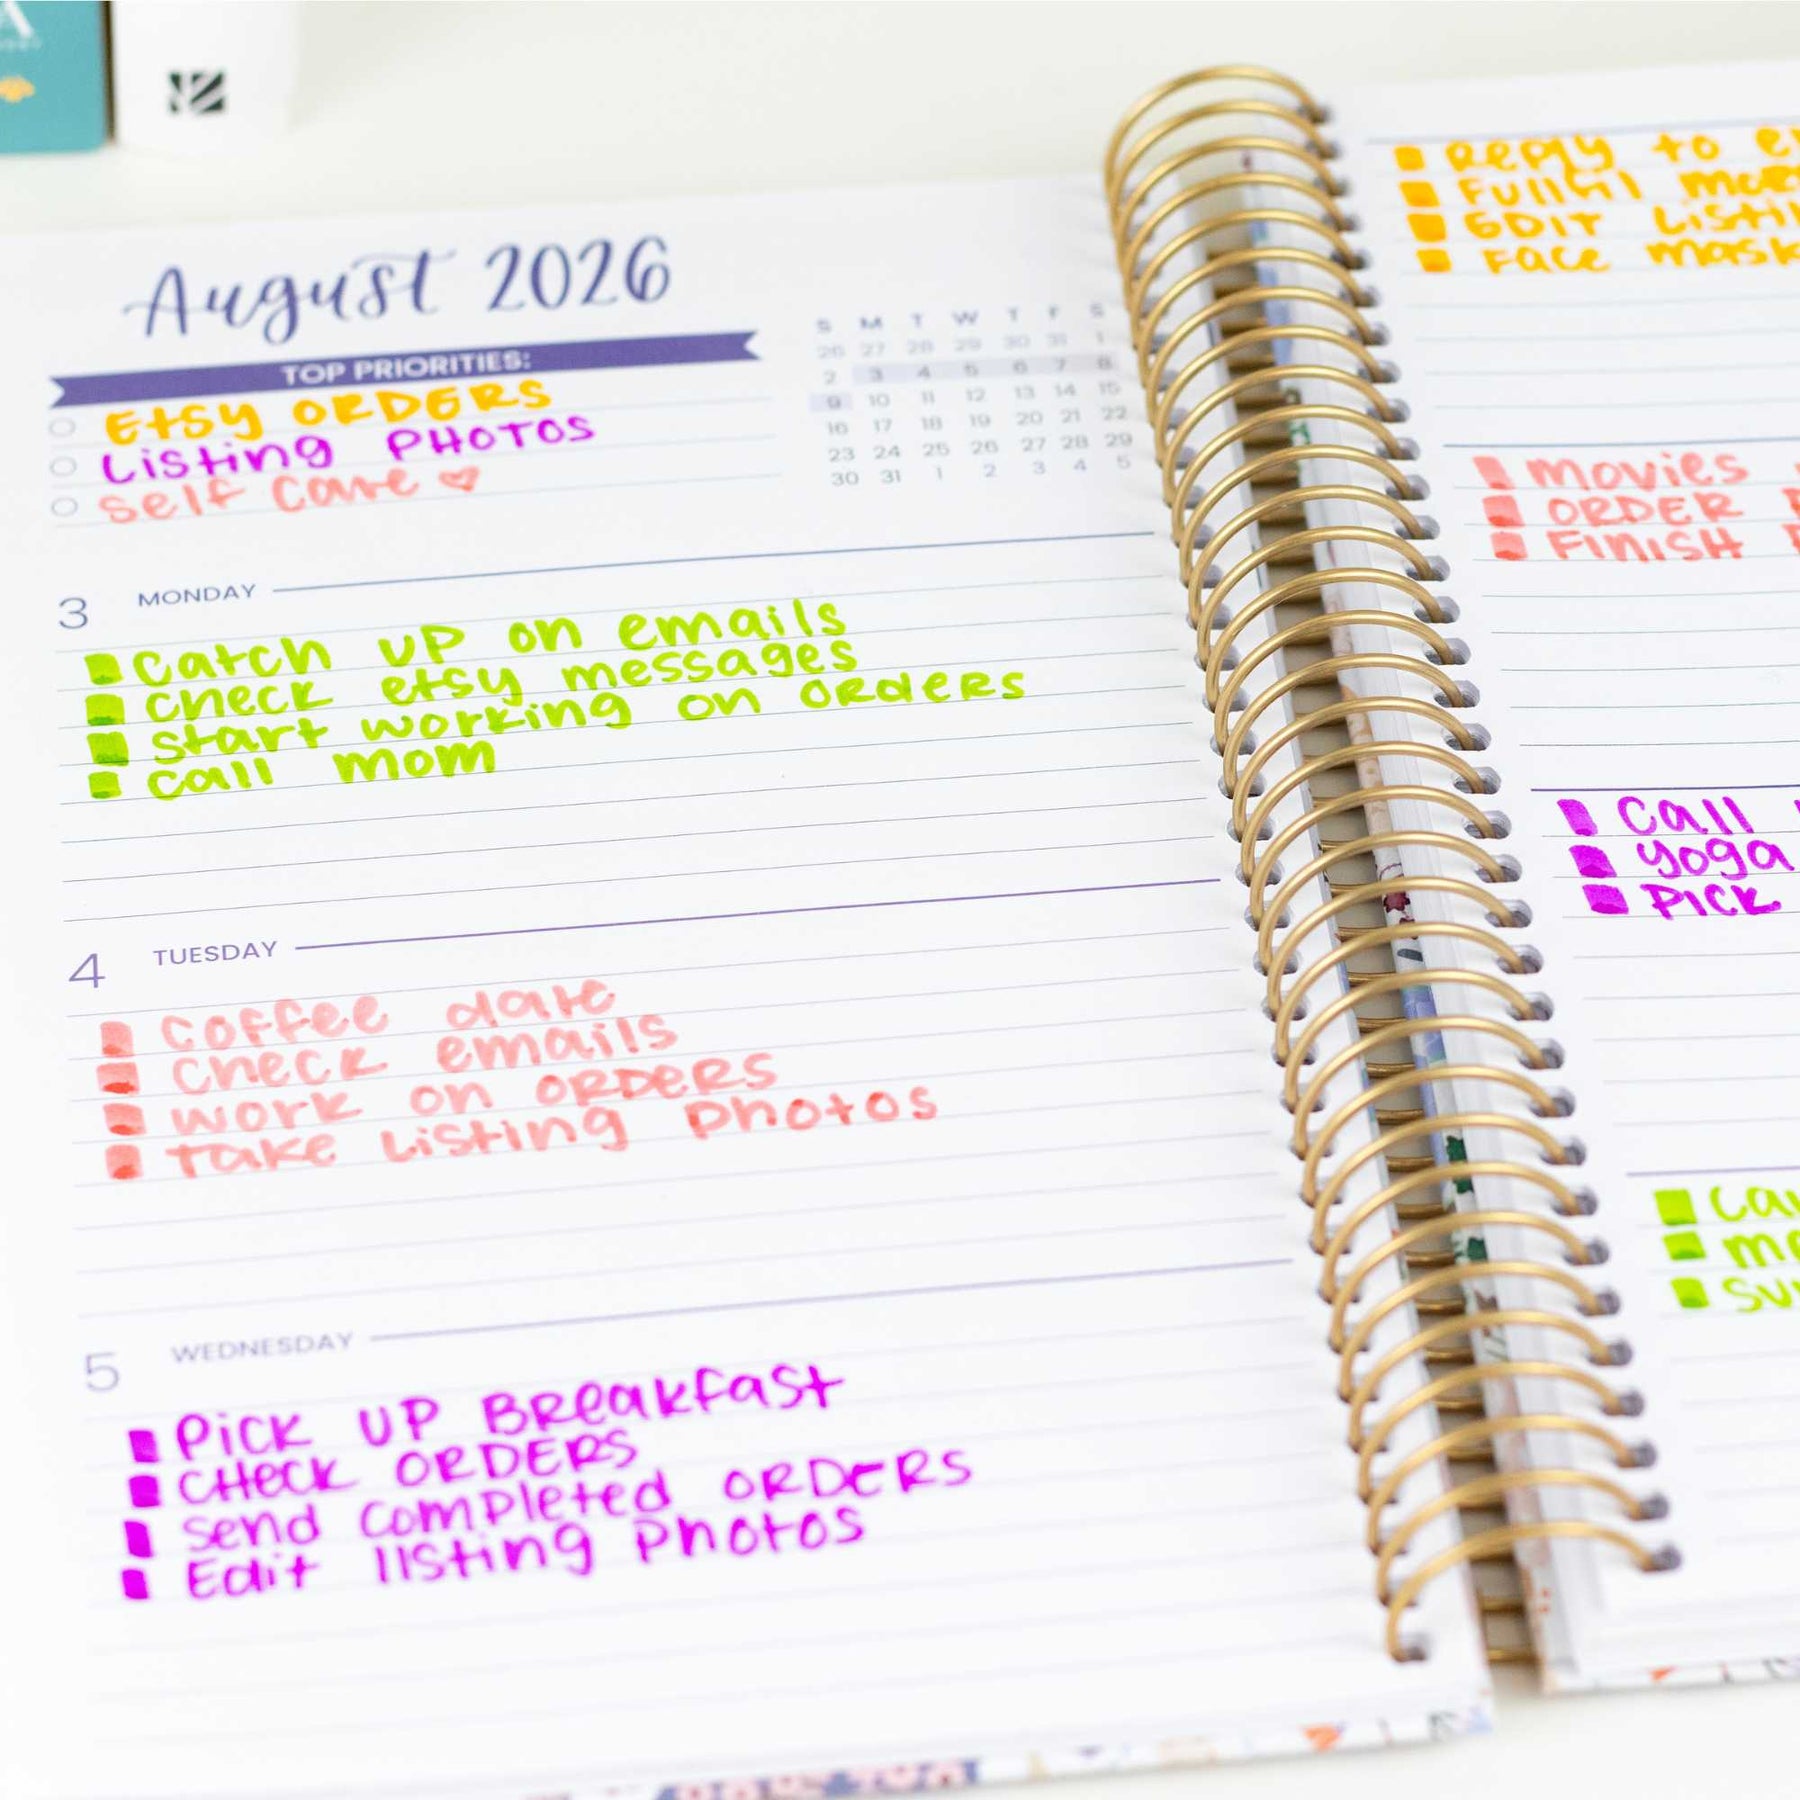 August 2026
TOP PRIORITIES:
Etsy ORDERS
Listing PHOTOS
Self Care
S M T W T F S
26 27 28 29 30 31 1
2 3 4 5 6 7 8
9 10 11 12 13 14 15
16 17 18 19 20 21 22
23 24 25 26 27 28 29
30 31 1 2 3 4 5
3 MONDAY
Catch up on emails
check etsy messages
start working on orders
call mom
4 TUESDAY
Coffee date
Check emails
work on ORDERS
Take Listing Photos
5 WEDNESDAY
Pick UP BReakfast
CHeck ORDERS
Send Completed ORDERS
Edit listing Photos
Reply to
EDIT
Face mask
Movies
ORDER
FINISH
Call
yoga
PICK